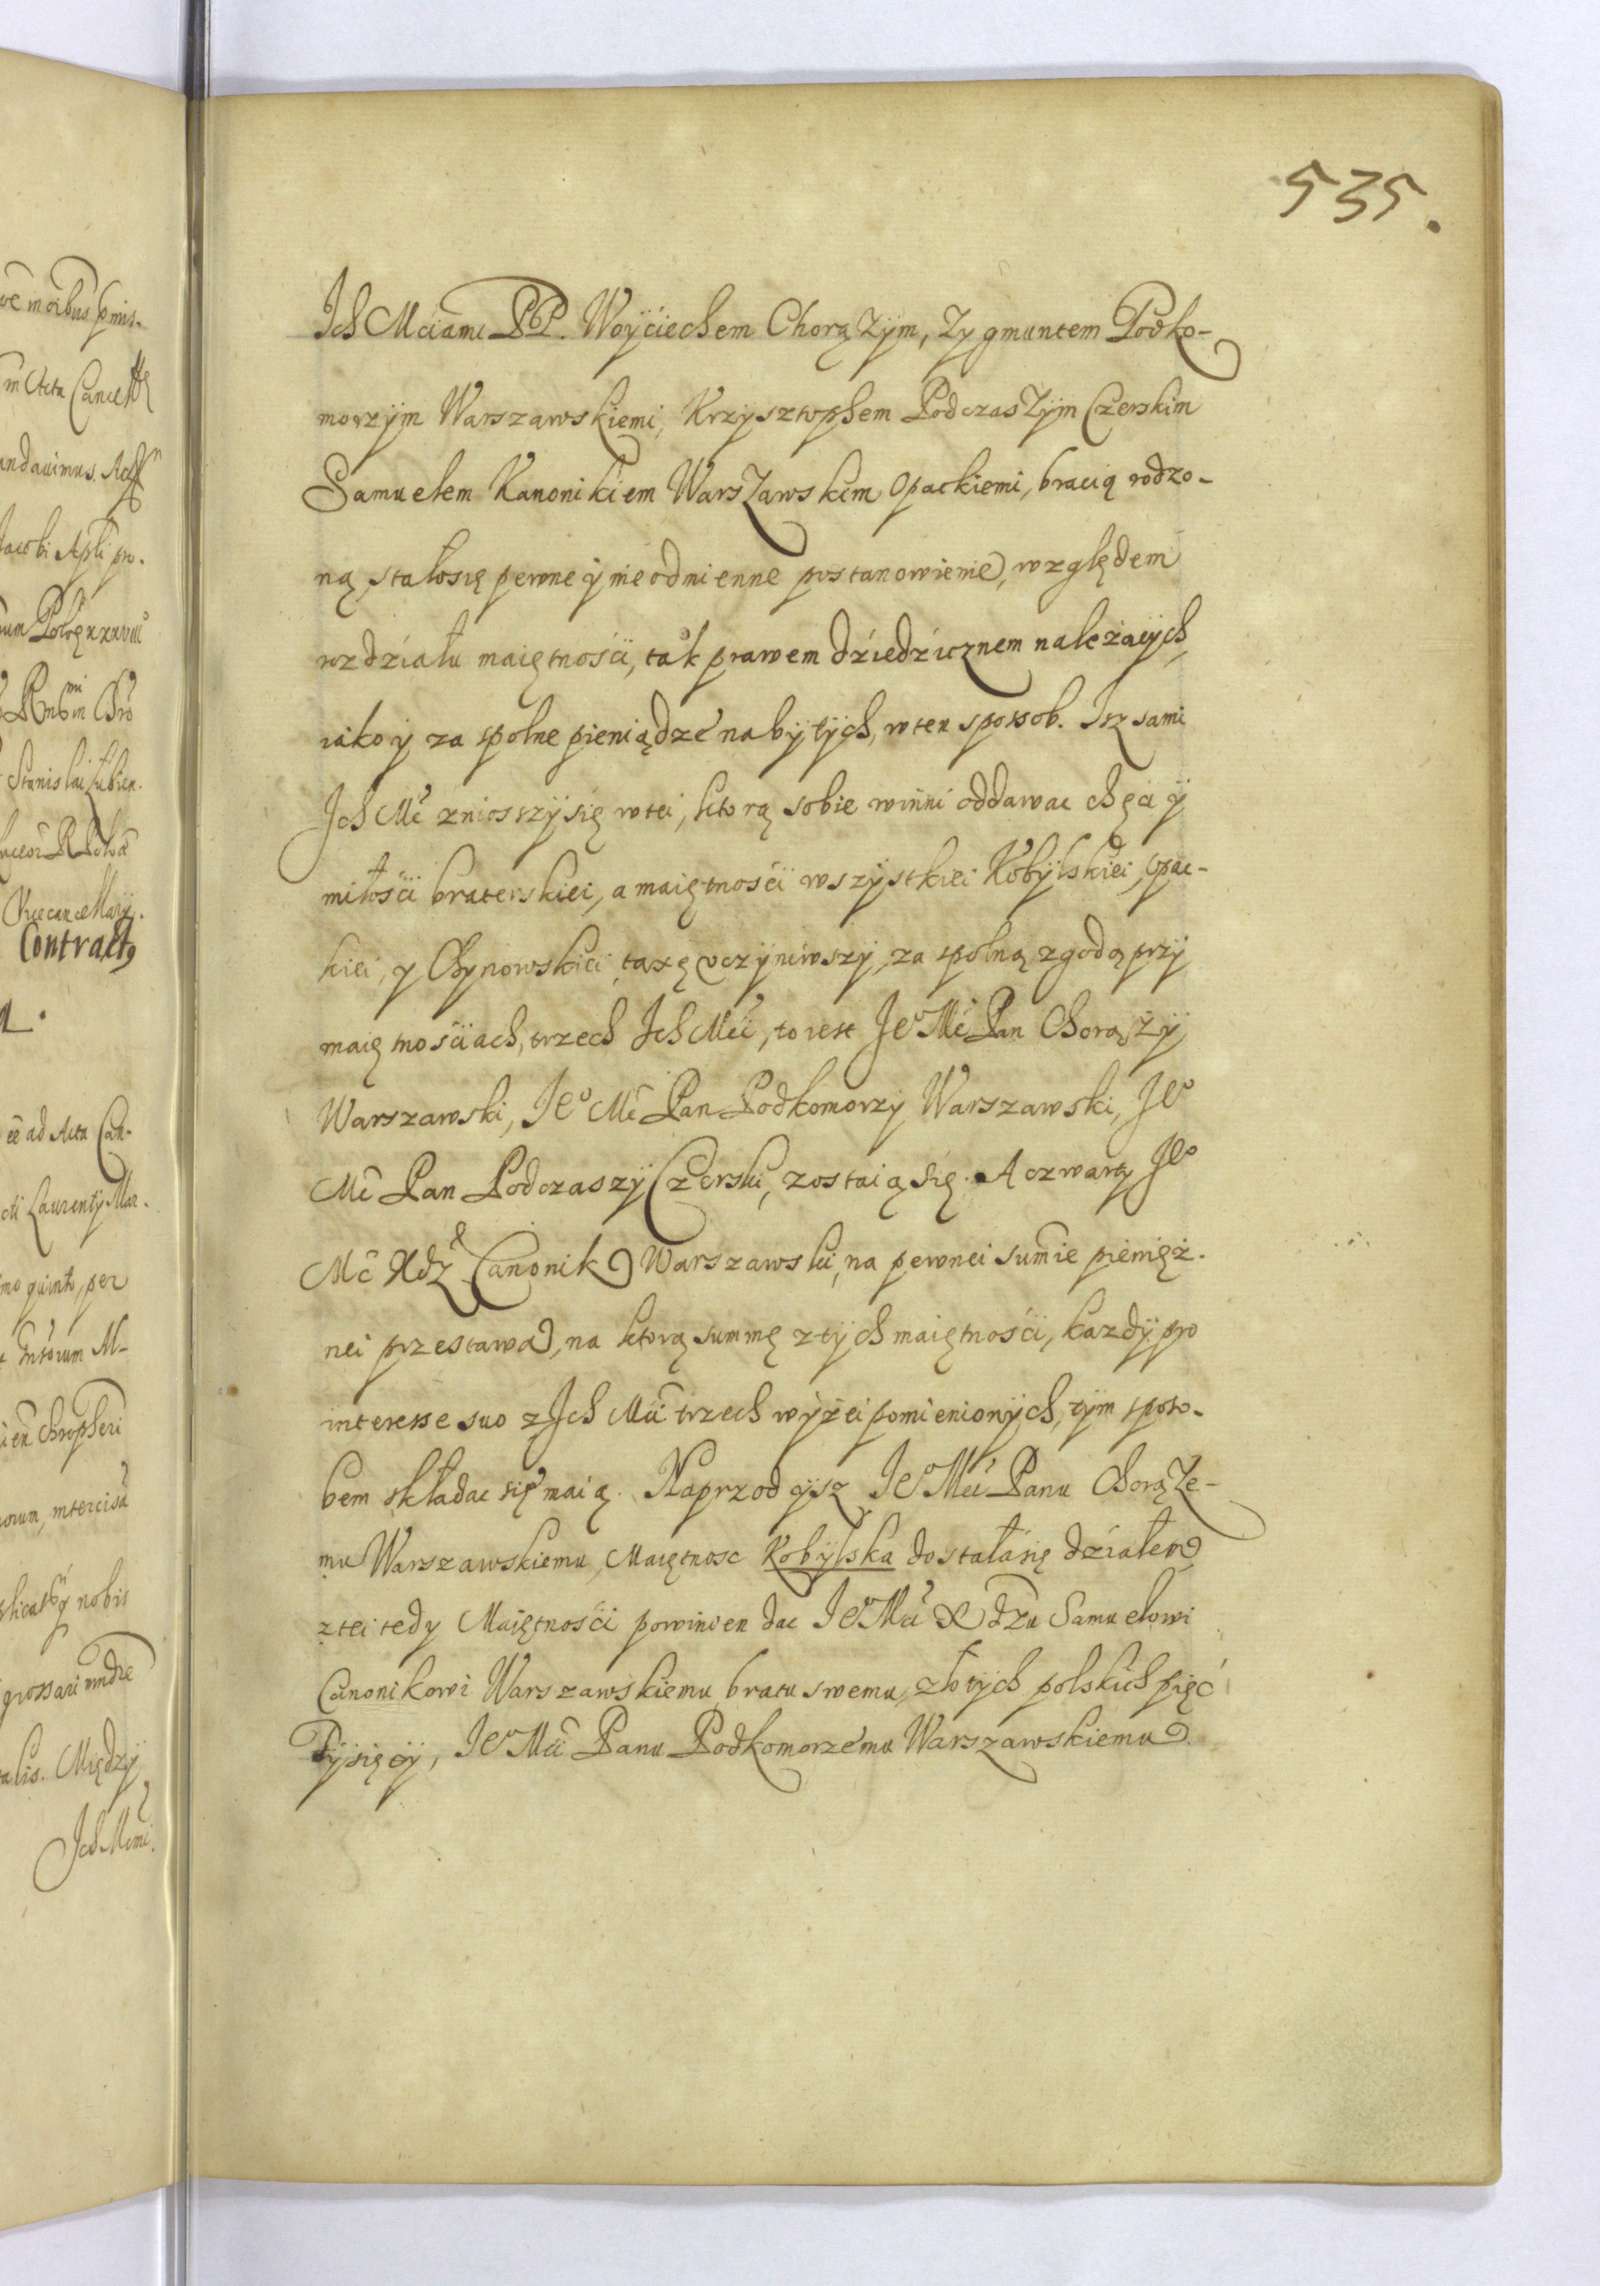 535.
Ich Mciami PP. Woyciechem Chorązym, Zygmuntem Podko-
morzym Warszawskiemi, Krzysztophem Podczaszym Czerskim
Samuelem Kanonikiem Warszawskim Opackiemi, bracią rodzo-
ną stałosię pewne y nieodmienne postanowienie, względem
rozdziału maiętności, tak prawem dziedzicznem należących,
iako y za spolne pieniądze nabytych, w ten sposob. Isz sami
Ich Mć zniosszy się w tei, ktorą sobie winni oddawac chęci y
miłości braterskiei, a maiętności wszystkiei Kobylskiei, Opac-
kiei, y Chynowskiei taxę uczyniwszy, za spolną zgodą przy
maiętnościach, trzech Ich Mći, to iest Je° Mć Pan Chorąży
Warszawski, Je° Mć Pan Podkomorzy Warszawski, Je°
Mć Pan Podczaszy Czerski, zostaią się. A czwarty Je°
Mć Xdz Canonik Warszawski, na pewnei sumie pienięż-
nei przestawa, na ktorą summę z tych maiętności, kazdy pro
interesse suo z Ich Mći trzech wyżei pomienionych, tym sposo-
bem składac się maią. Naprzod ysz Je° Mći Panu Chorąże-
mu Warszawskiemu, Maiętnosc Kobylska dostałasię działem
z tei tedy Maiętności powinien dac Je° Mći Xdzu Samuelowi
Canonikowi Warszawskiemu bratu swemu, złotych polskich pięć
Tysięcy, Je° Mći Panu Podkomorzemu Warszawskiemu
in Acta
Jacobi Apli
Stanislai Łubien.
Contract9
ad Acta Can-
Laurentij Mar.
quinto, per
intercisa
nobis
Między
Ich Mcmi.